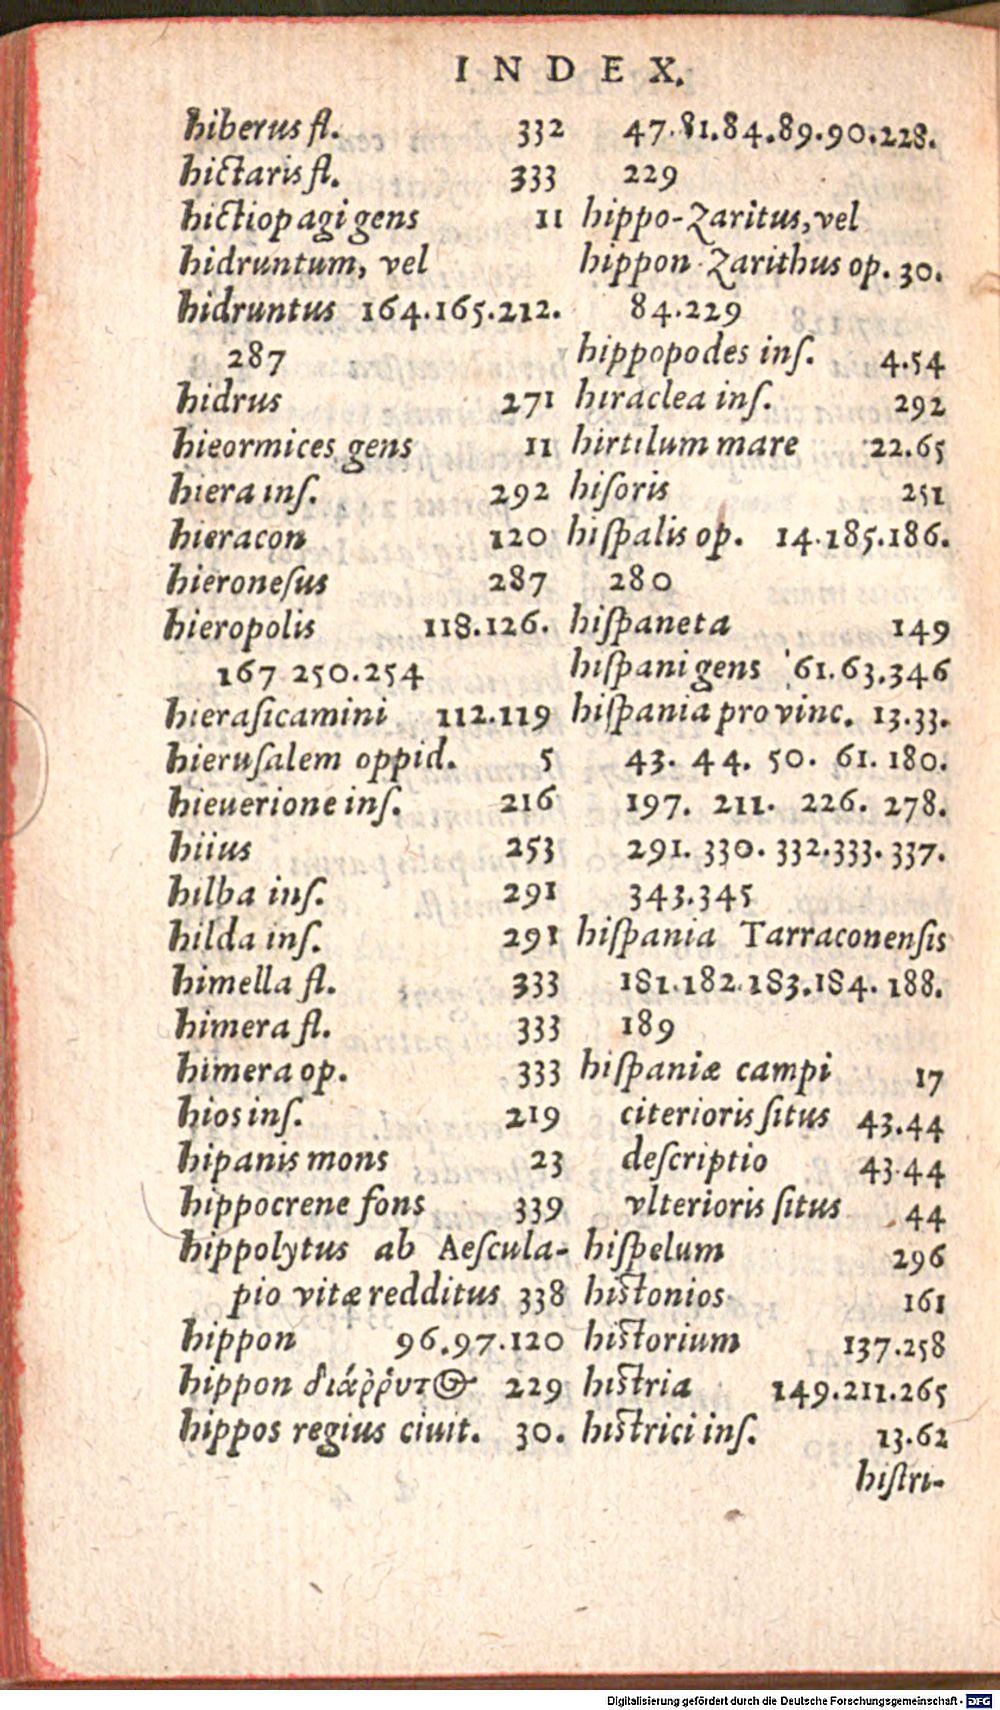 INDEX.
hiberus fl. 332
hictaris fl. 333
hictiopagi gens 11
hidruntum, vel
hidruntus 164.165.212.
287
hidrus 271
hieormices gens 11
hiera inſ. 292
hieracon 120
hieroneſus 287
hieropolis 118.126.
167 250.254
hieraſicamini 112.119
hieruſalem oppid. 5
hieuerione inſ. 216
hiius 253
hilba inſ. 291
hilda inſ. 291
himella fl. 333
himera fl. 333
himera op. 333
hios inſ. 219
hipanis mons 23
hippocrene fons 339
hippolytus ab Aeſcula-
pio vitæ redditus 338
hippon 96.97.120
hippon διάῤῥυτος 229
hippos regius ciuit. 30.
47.81.84.89.90.228.
229
hippo-Zaritus, vel
hippon Zarithus op. 30.
84.229
hippopodes inſ. 4.54
hiraclea inſ. 292
hirtilum mare 22.65
hiſoris 251
hiſpalis op. 14.185.186.
280
hiſpaneta 149
hiſpani gens 61.63.346
hiſpania provinc. 13.33.
43. 44. 50. 61. 180.
197. 211. 226. 278.
291. 330. 332.333.337.
343.345
hiſpania Tarraconenſis
181.182.183.184.188.
189
hiſpaniæ campi 17
citerioris ſitus 43.44
deſcriptio 43.44
vlterioris ſitus 44
hiſpelum 296
hiſtonios 161
hiſtorium 137.258
hiſtria 149.211.265
hiſtrici inſ. 13.62
hiſtri-
Digitalisierung gefördert durch die Deutsche Forschungsgemeinschaft - DFG